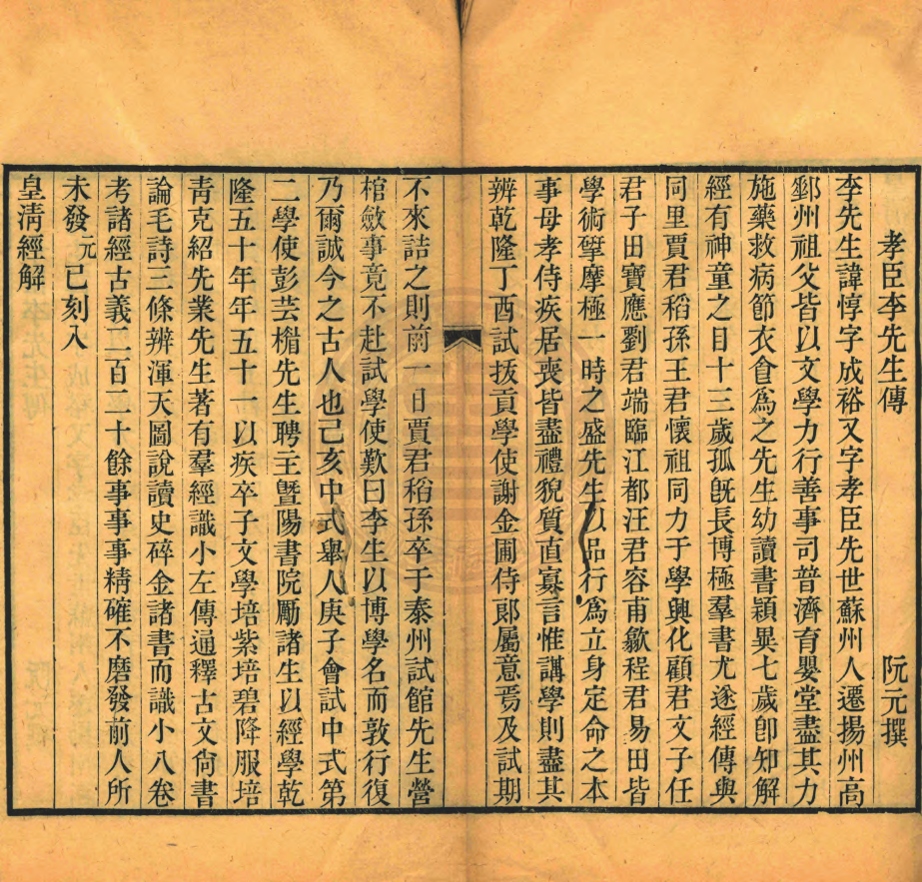 孝臣李先生傳　阮元撰
李先生諱惇字成裕又字孝臣先世蘇州人遷揚州高
郵州祖父皆以文學力行善事司普濟育嬰堂盡其力
施藥救病節衣食爲之先生幼讀書穎異七歲卽知解
經有神童之目十三歲孤旣長博極羣書尤遂經傳與
同里賈君稻孫王君懷祖同力于學興化顧君文子任
君子田寶應劉君端臨江都汪君容甫歙程君易田皆
學術揅摩極一時之盛先生以品行爲立身定命之本
事母孝侍疾居喪皆盡禮貌質直寡言惟講學則盡其
辨乾隆丁酉試拔貢學使謝金圃侍郎屬意焉及試期
不來詰之則前一日賈君稻孫卒于泰州試館先生營
棺斂事竟不赴試學使歎曰李生以博學名而敦行復
乃爾誠今之古人也己亥中式舉人庚子會試中式第
二學使彭芸楣先生聘主曁陽書院勵諸生以經學乾
隆五十年年五十一以疾卒子文學培紫培碧降服培
靑克紹先業先生著有羣經識小左傳通釋古文尙書
論毛詩三條辨渾天圖說讀史碎金諸書而識小八卷
考諸經古義二百二十餘事事事精確不磨發前人所
未發元已刻入
皇淸經解